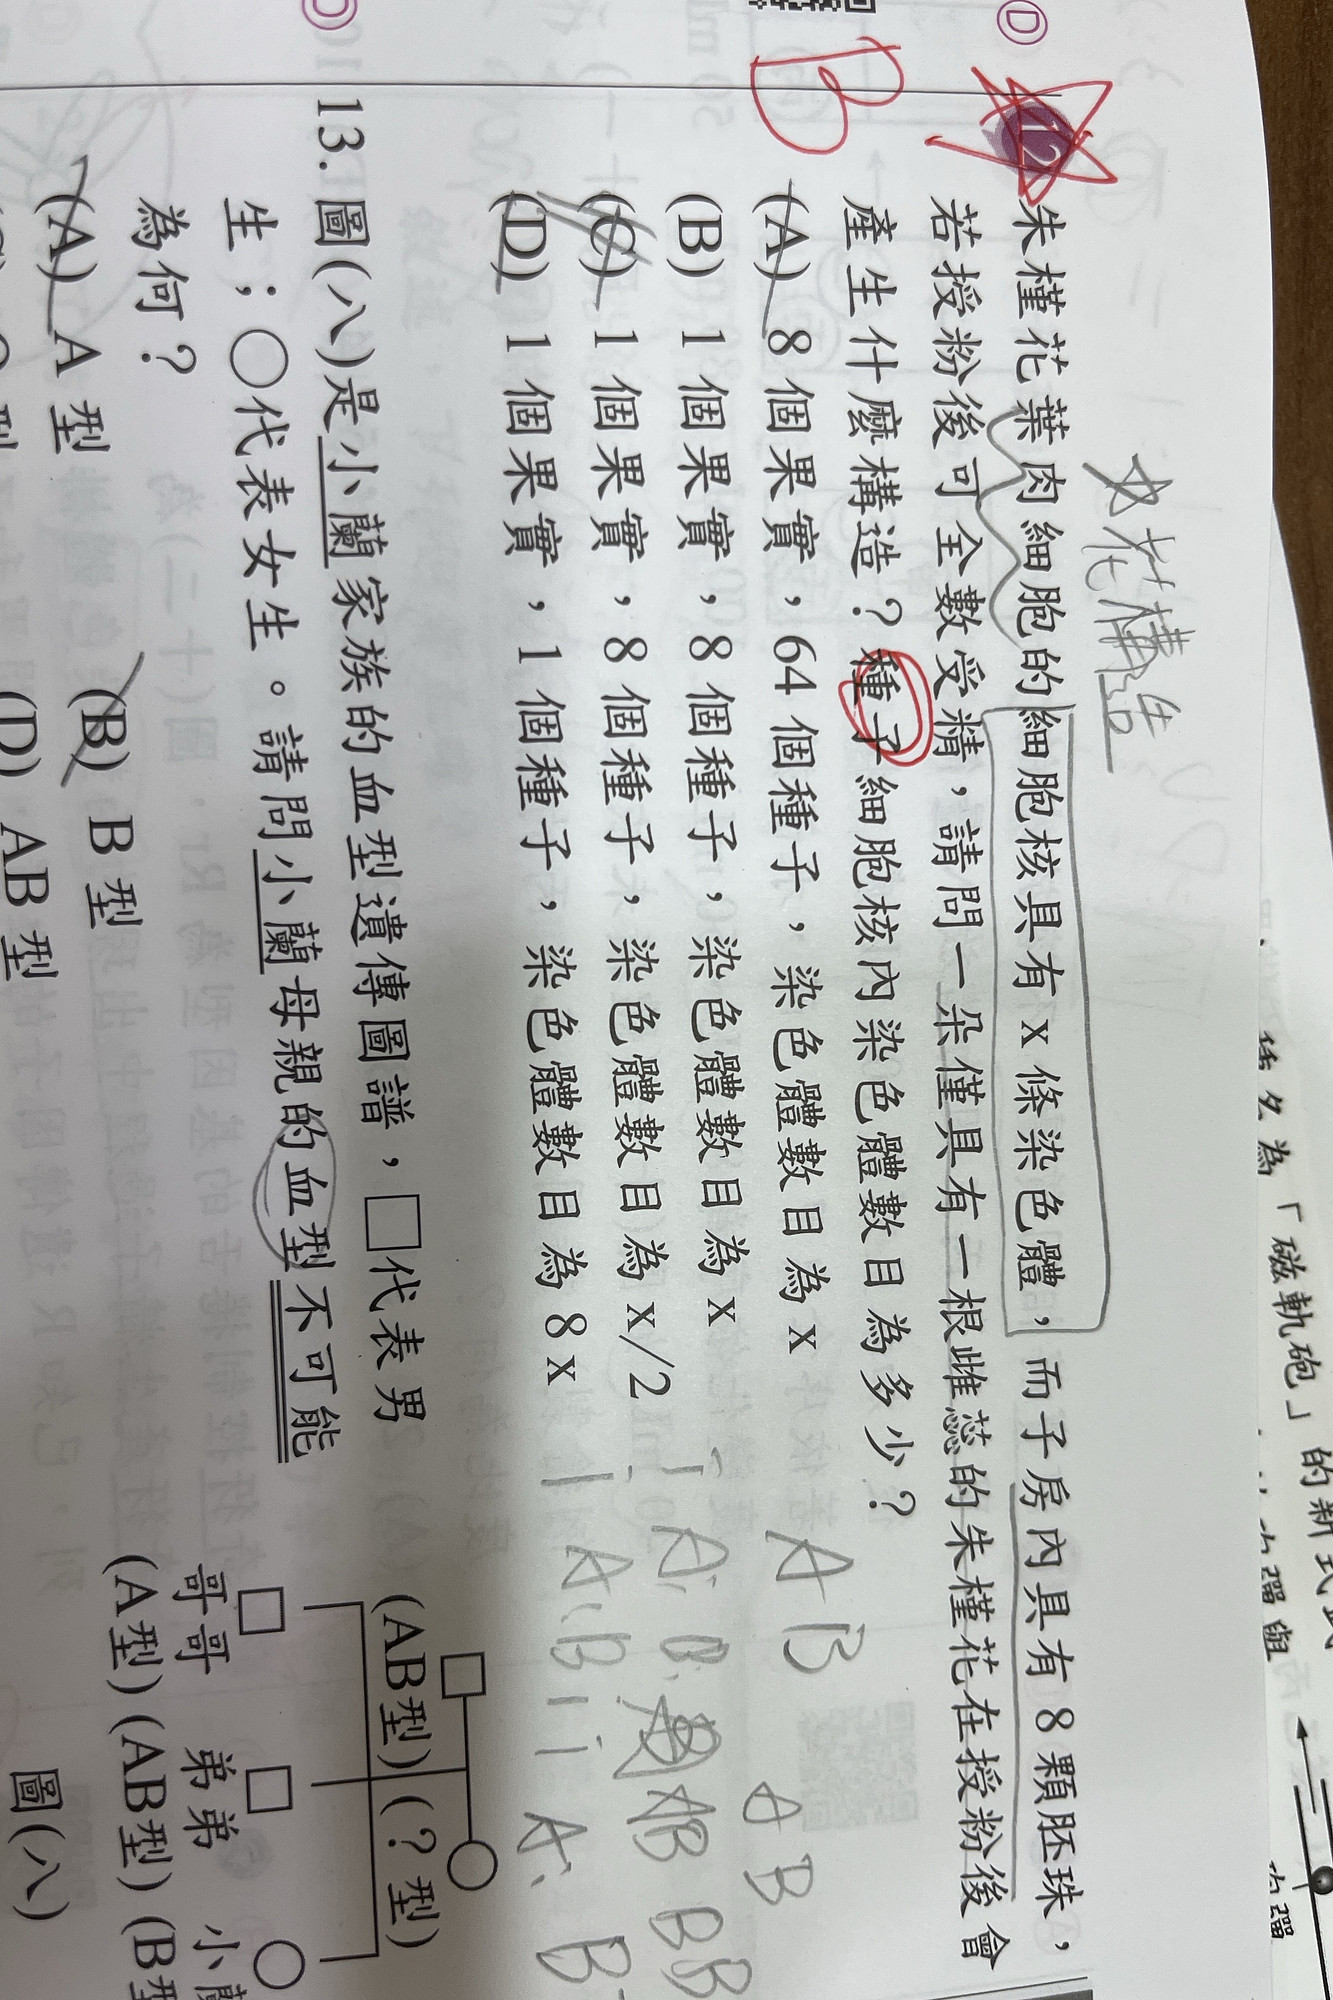 ☆花構造
12 朱槿花葉肉細胞的細胞核具有 x 條染色體，而子房內具有 8 顆胚珠，
若授粉後可全數受精，請問一朵僅具有一根雌蕊的朱槿花在授粉後會
產生什麼構造？種子細胞核內染色體數目為多少？
B
(A) 8 個果實，64 個種子，染色體數目為 x
(B) 1 個果實，8 個種子，染色體數目為 x
(C) 1 個果實，8 個種子，染色體數目為 x/2
(D) 1 個果實，1 個種子，染色體數目為 8 x
A B
A B
13. 圖(八)是小蘭家族的血型遺傳圖譜，□代表男
生；○代表女生。請問小蘭母親的血型不可能
為何？
(A) A 型
(B) B 型
(D) AB 型
(AB型) (？型)
哥哥 弟弟 小蘭
(A型) (AB型) (B型
圖(八)
D
D
為「磁軌砲」的新式武